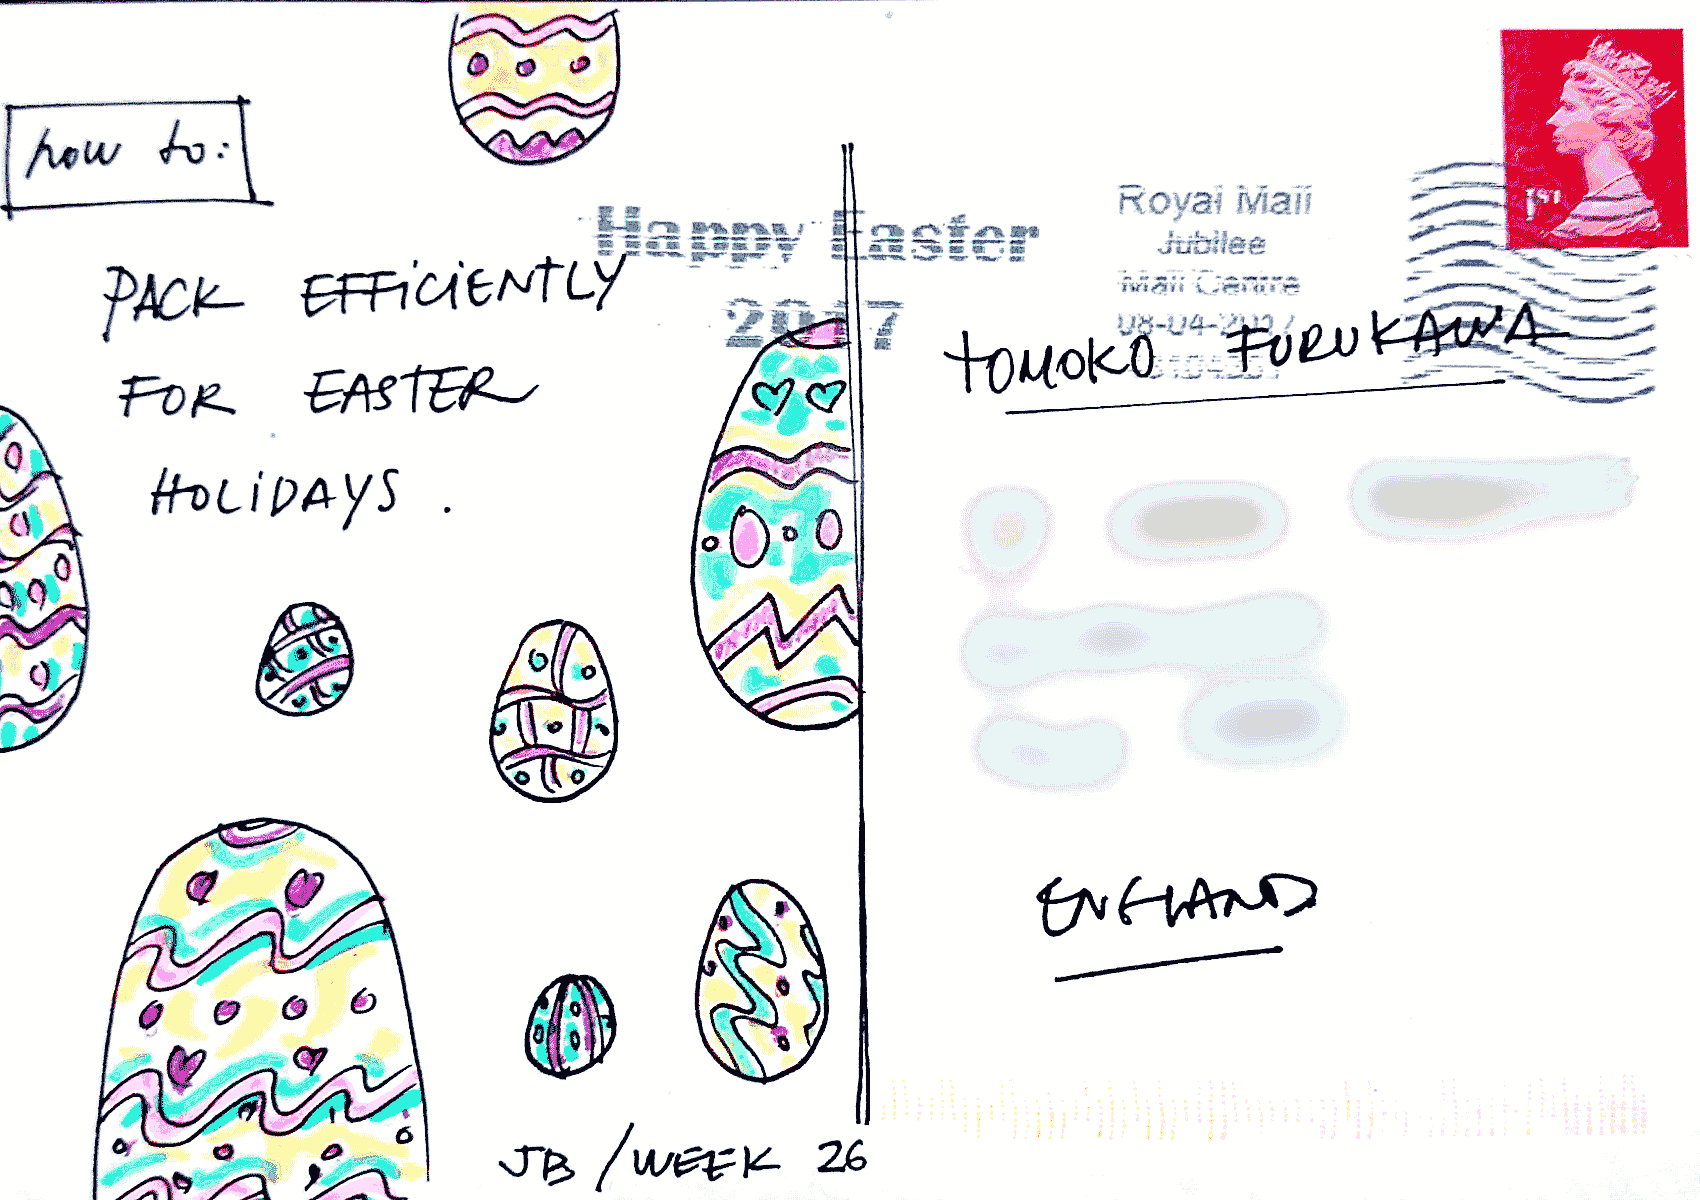 how to:
PACK EFFiCiENTLY
FOR EASTER
HOLiDAYS.
JB / WEEK 26
Happy Easter
2017
Royal Mail
Jubilee
Mail Centre
08-04-2017
1ST
TOMOKO FURUKAWA
ENGLAND